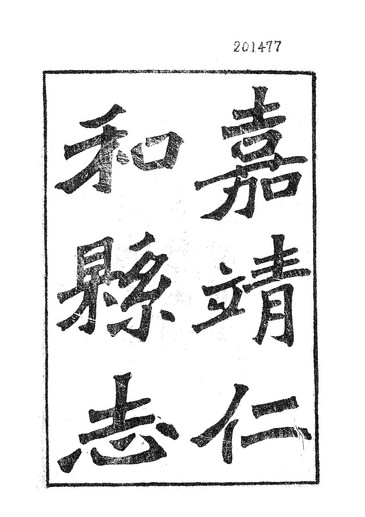 201477
嘉靖仁
和縣志